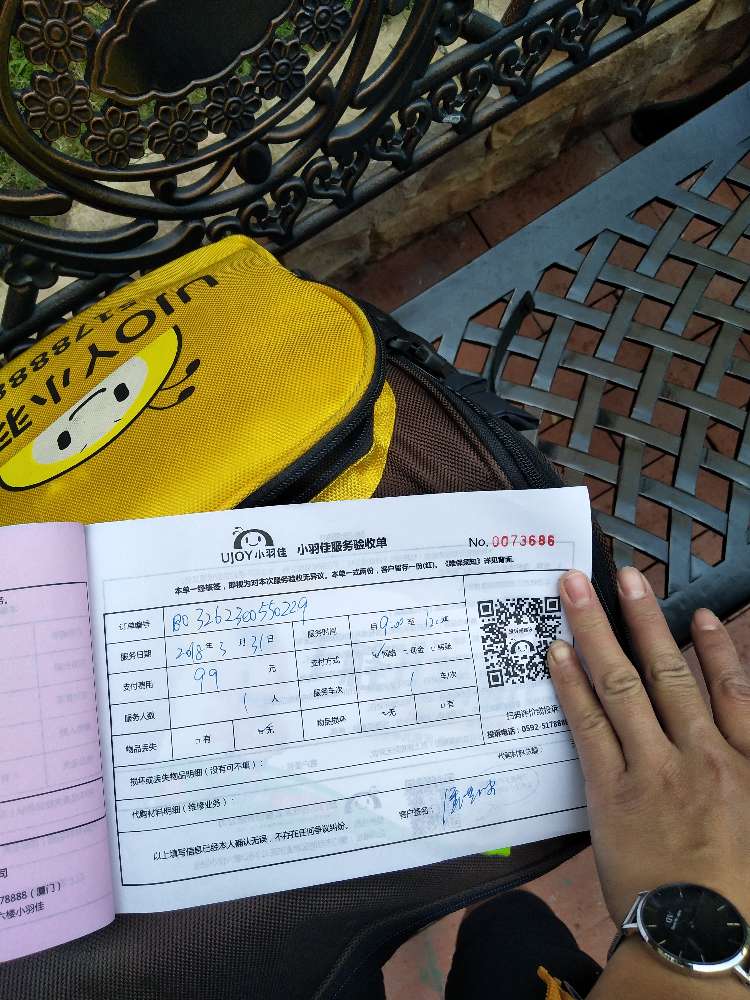 UJOY小羽
5178888
UJOY小羽佳 小羽佳服务验收单 No.0073686
本单一经签签，即视为对本次服务验收无异议。本单一式两份，客户暂存一份(红)。《维保须知》详见背面。
订单编号 BO3262300550229
服务日期 2018年3月31日 服务时间 自9:00至12:00止
支付费用 99 元 支付方式 网络 现金 转账
服务人数 1 人 服务车次 1 车/次
物品丢失 有 无 物品损坏 无 有
扫码评价或投诉
投诉电话：0592-517888
损坏或丢失物品明细（没有可不填）：
代购材料明细（维修业务）： 代购材料总额
客户签名：
以上填写信息已经本人确认无误，不存在任何争议纠纷。
司
78888（厦门）
六楼小羽佳